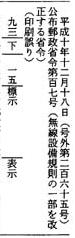 平成十年十二月十八日（号外第二百六十五号）
公布郵政省令第百七号（無線設備規則の一部を改
正する省令）
（印刷誤り）
九三 下 一五 標示 表示